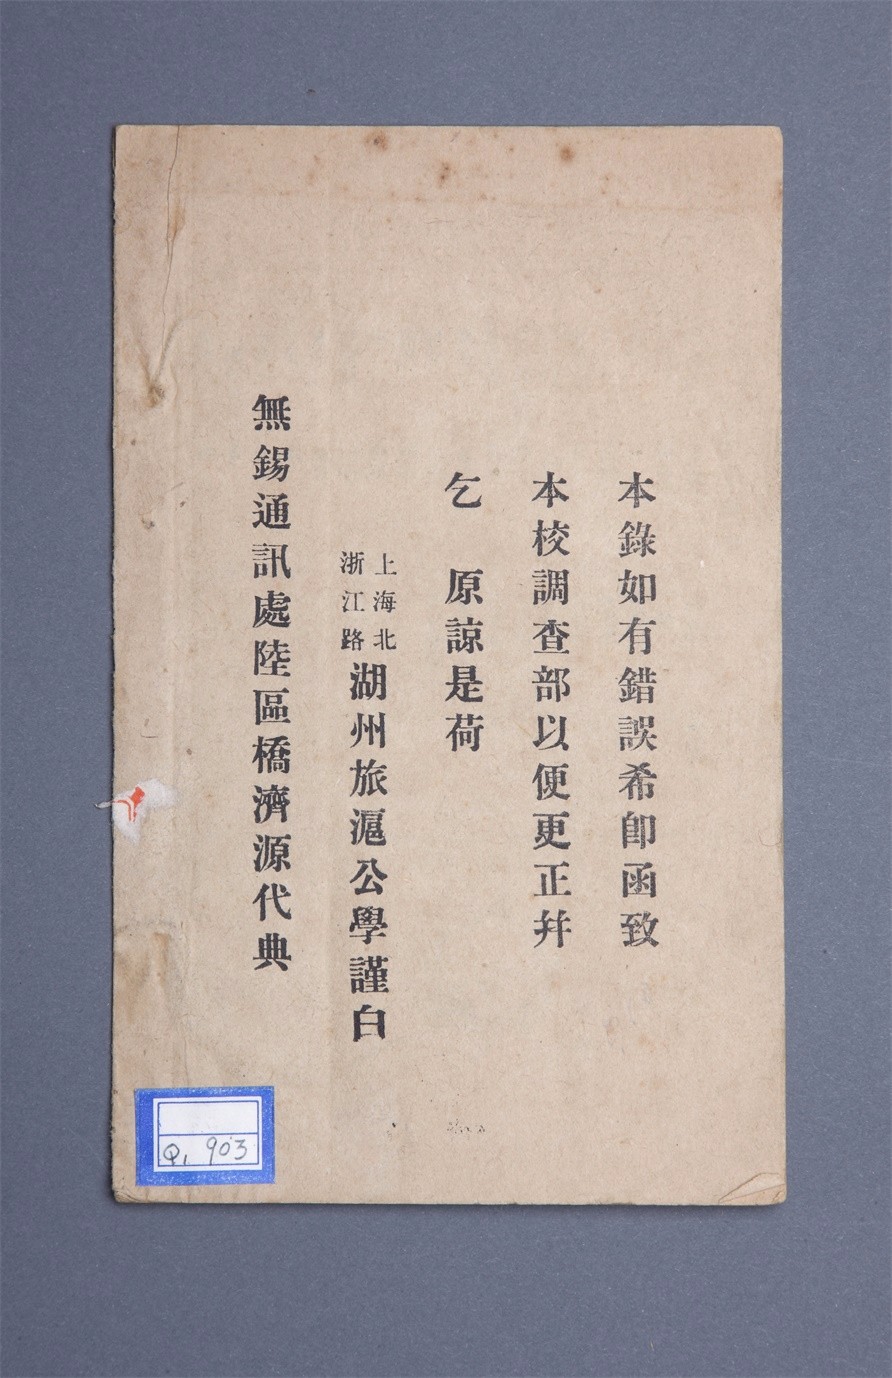 本錄如有錯誤希即函致
本校調查部以便更正幷
乞　原諒是荷
上海北
浙江路
湖州旅滬公學謹白
無錫通訊處陸區橋濟源代典
Q, 903